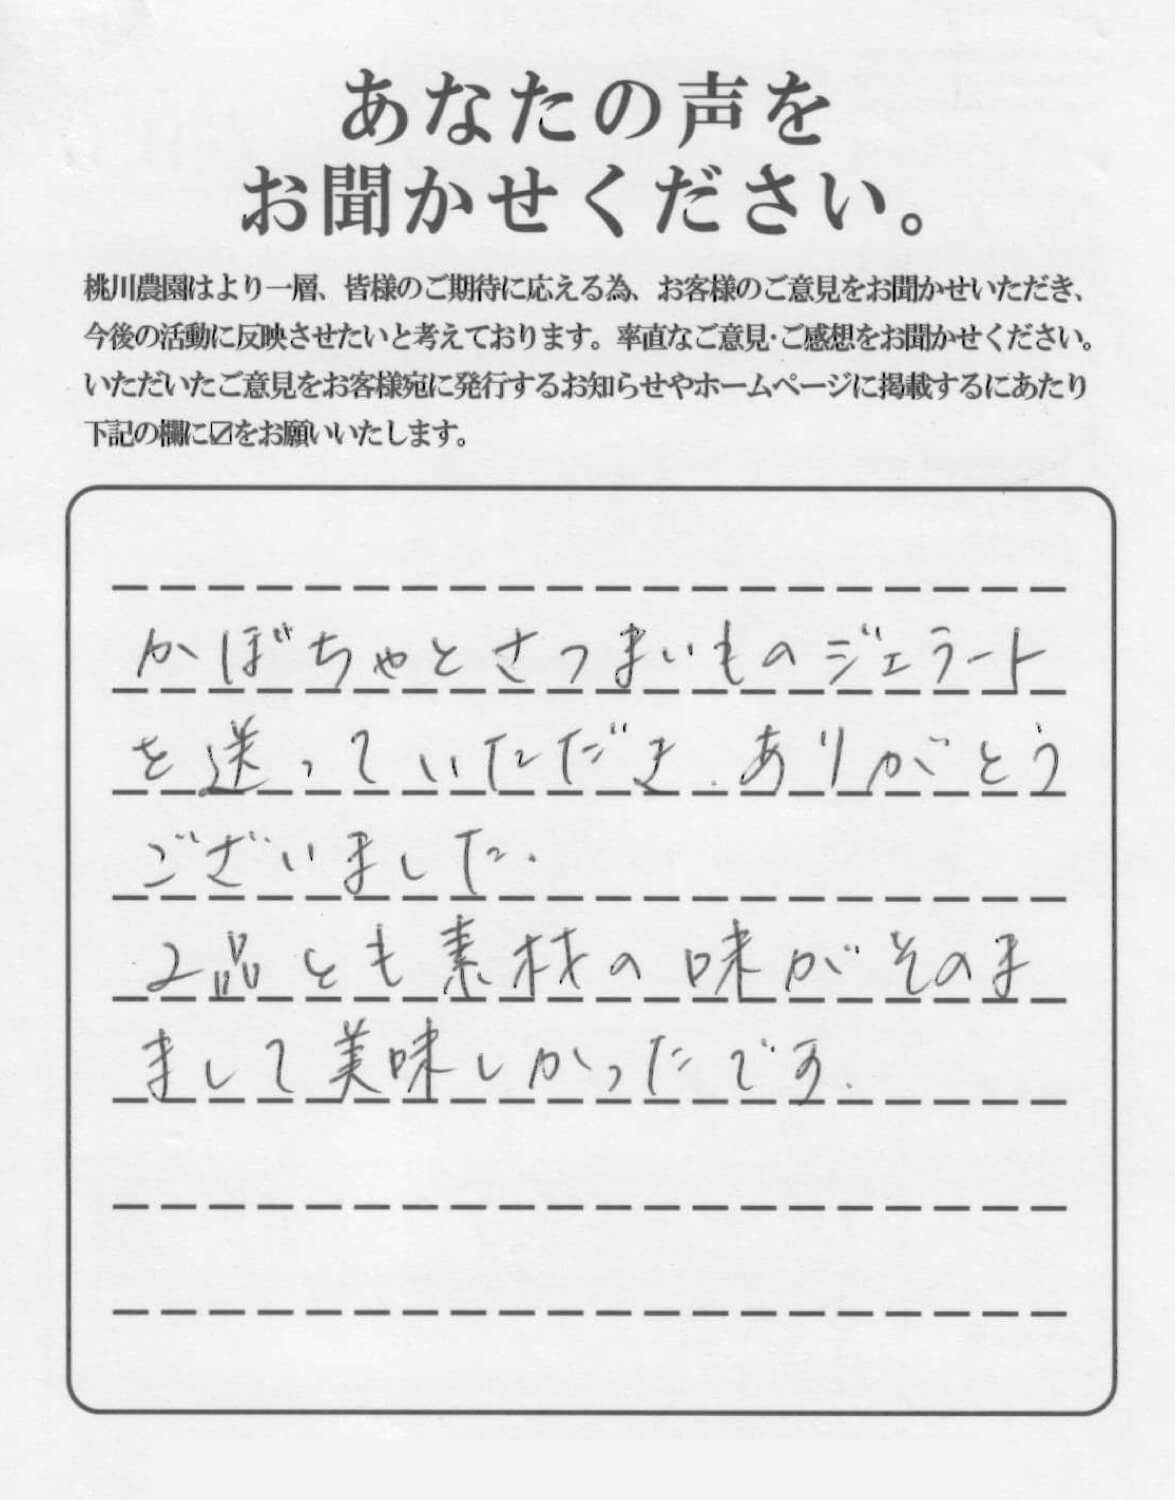 あなたの声を
お聞かせください。
桃川農園はより一層、皆様のご期待に応える為、お客様のご意見をお聞かせいただき、
今後の活動に反映させたいと考えております。率直なご意見・ご感想をお聞かせください。
いただいたご意見をお客様宛に発行するお知らせやホームページに掲載するにあたり
下記の欄に☑をお願いいたします。
かぼちゃとさつまいものジェラート
を送っていただき、ありがとう
ございました。
2品とも素材の味がそのま
まして美味しかったです。